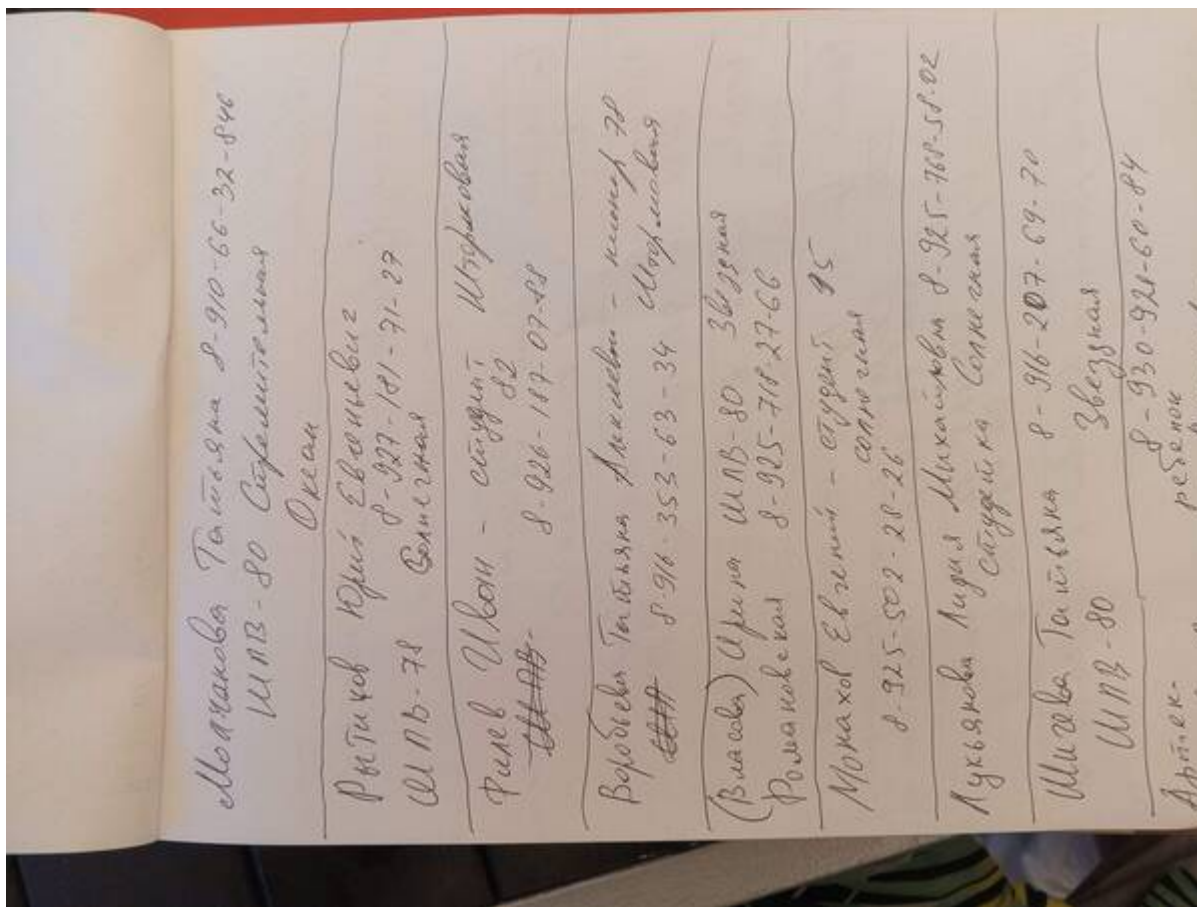 Молчанова Татьяна 8-910-66-32-846
ШПВ-80 Стремительная
Океан
Рытиков Юрий Евгеньевич
8-927-181-71-27
ШПВ-78 Солнечная
Филев Иван - студент Штормовая
82
8-926-187-07-88
Воробьева Татьяна - пионер 78
8-916-353-63-34 Штормовая
(Власова) Ирина ШПВ-80 Звездная
Романовская 8-925-718-27-66
Монахов Евгений - студент 95
солнечная
8-925-502-28-26
Лукьянова Лидия Михайловна 8-925-768-58-02
студентка Солнечная
Шигева Татьяна 8-916-207-69-70
ШПВ-80 Звездная
8-930-921-60-84
Артек- ребенок